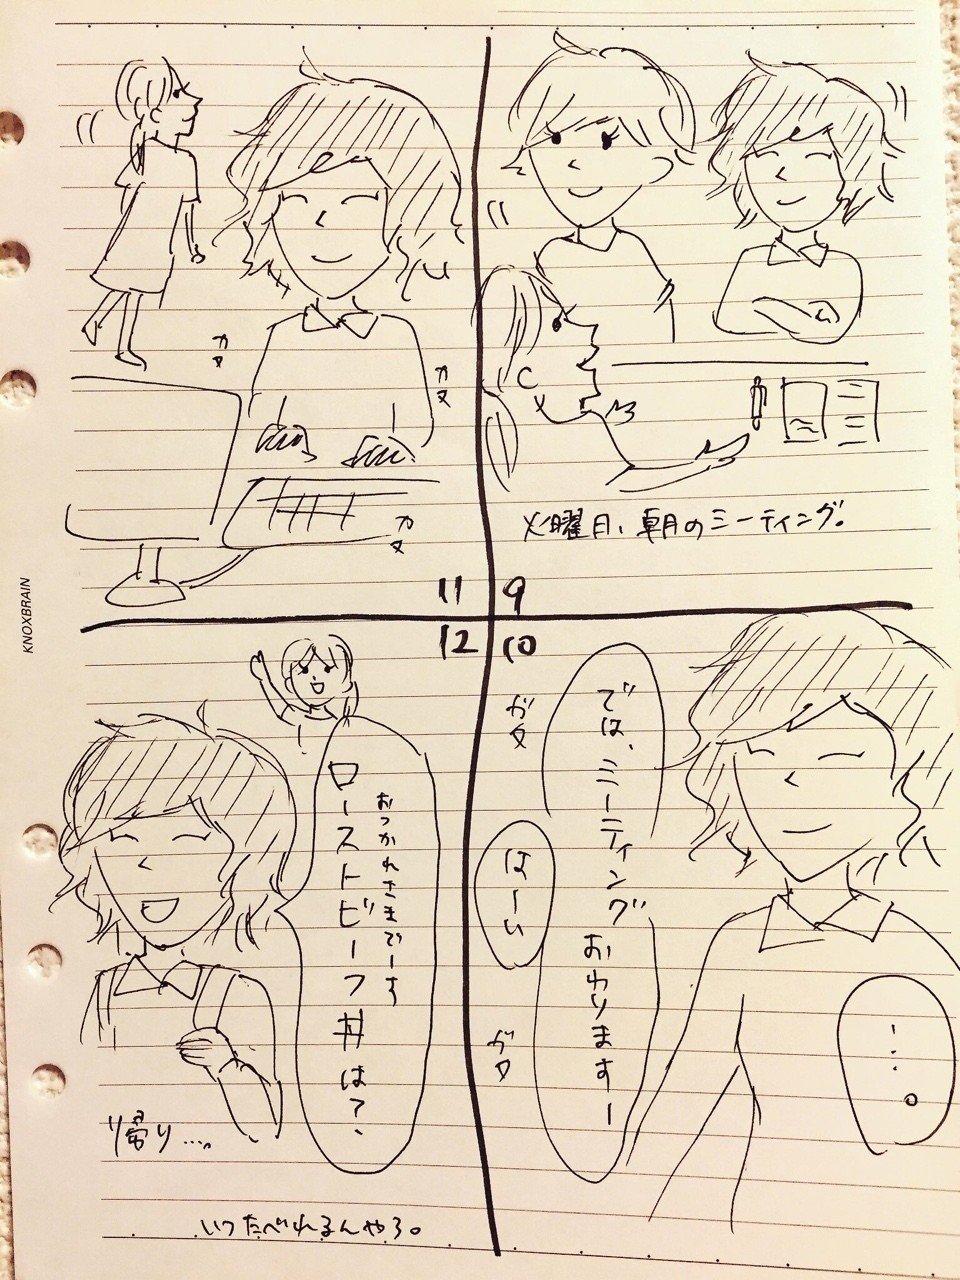 火曜日、朝のミーティング。
9
では、ミーティング
おわりますー
はーい
ガタ
ガタ
…。
10
カタ
カタ
カタ
11
12
おつかれさまでーす
ローストビーフ丼は?、
帰り….
いつたべれるんやろ。
KNOXBRAIN